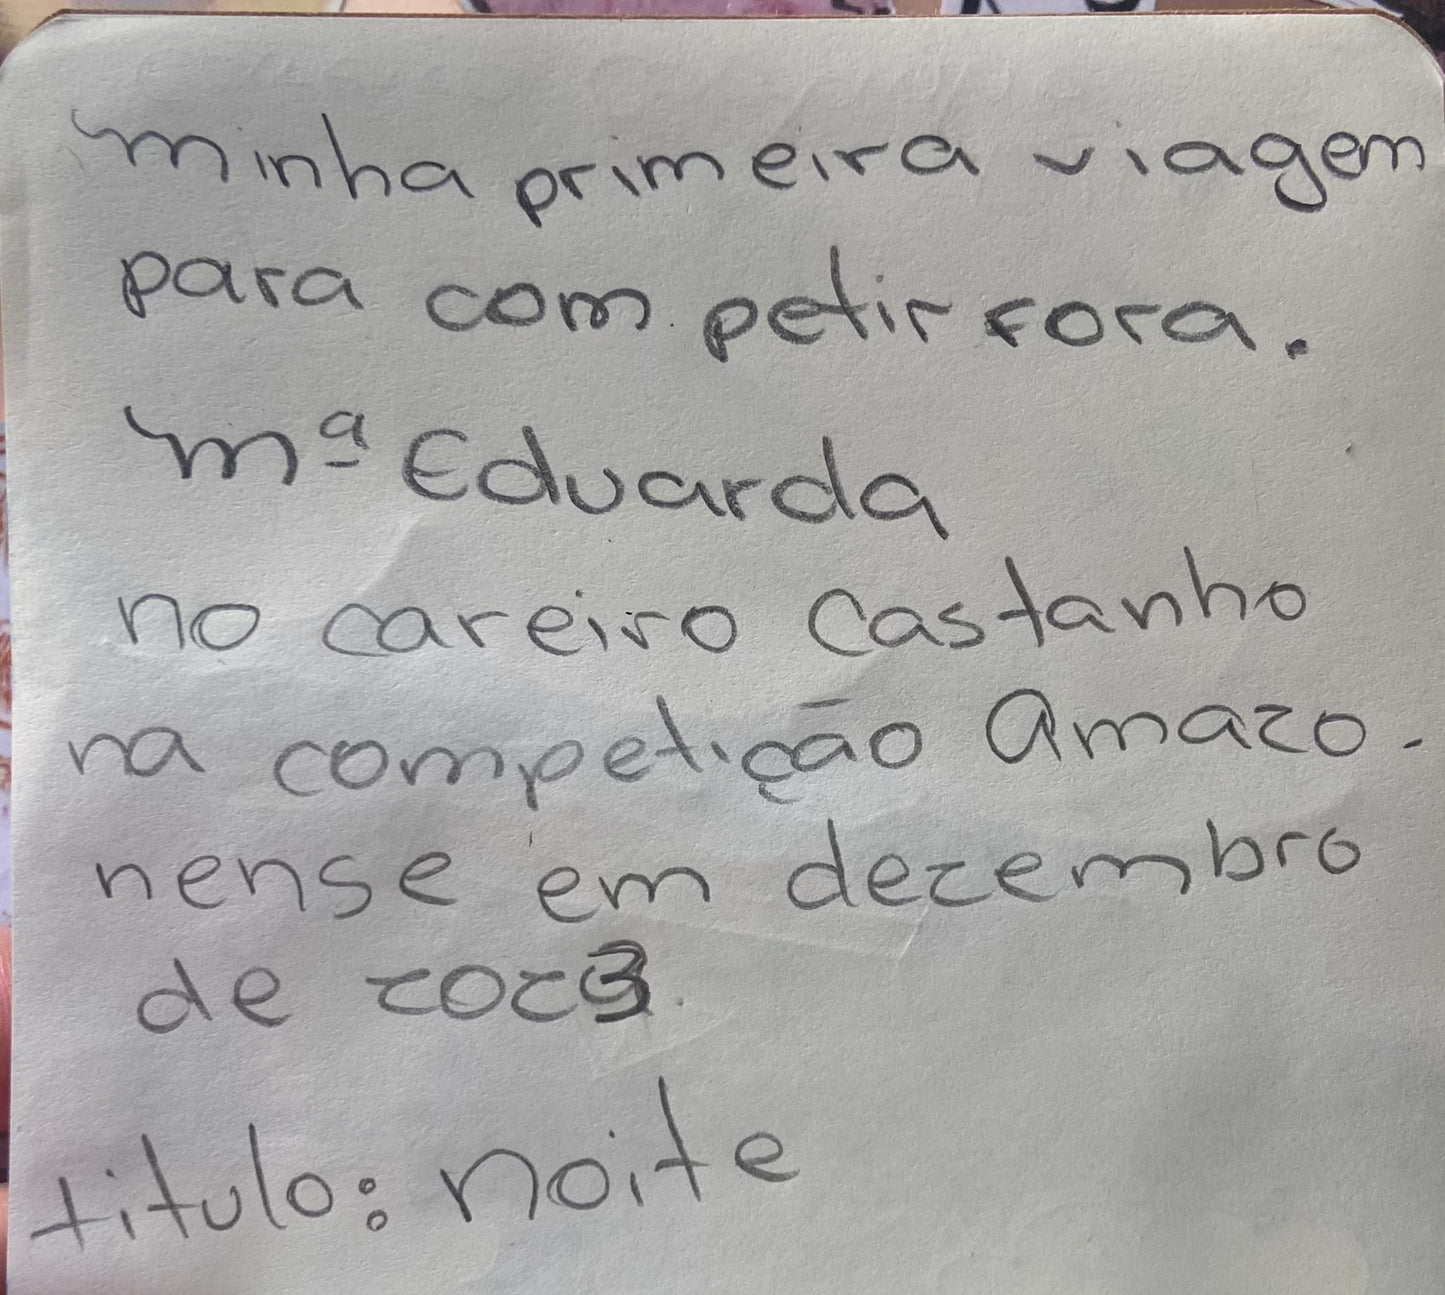 minha primeira viagem
para competir fora.
Mª Eduarda
no careiro Castanho
na competição Amazo-
nense em dezembro
de 2023.
titulo: noite